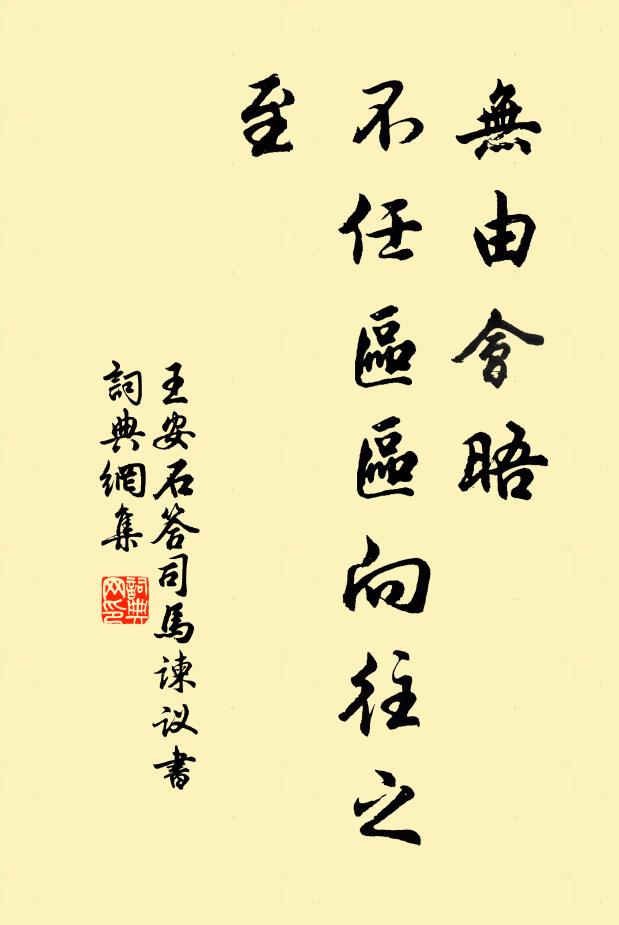 無由會晤
不任區區向往之
至
王安石答司馬諫议書
詞典網集
詞典网印